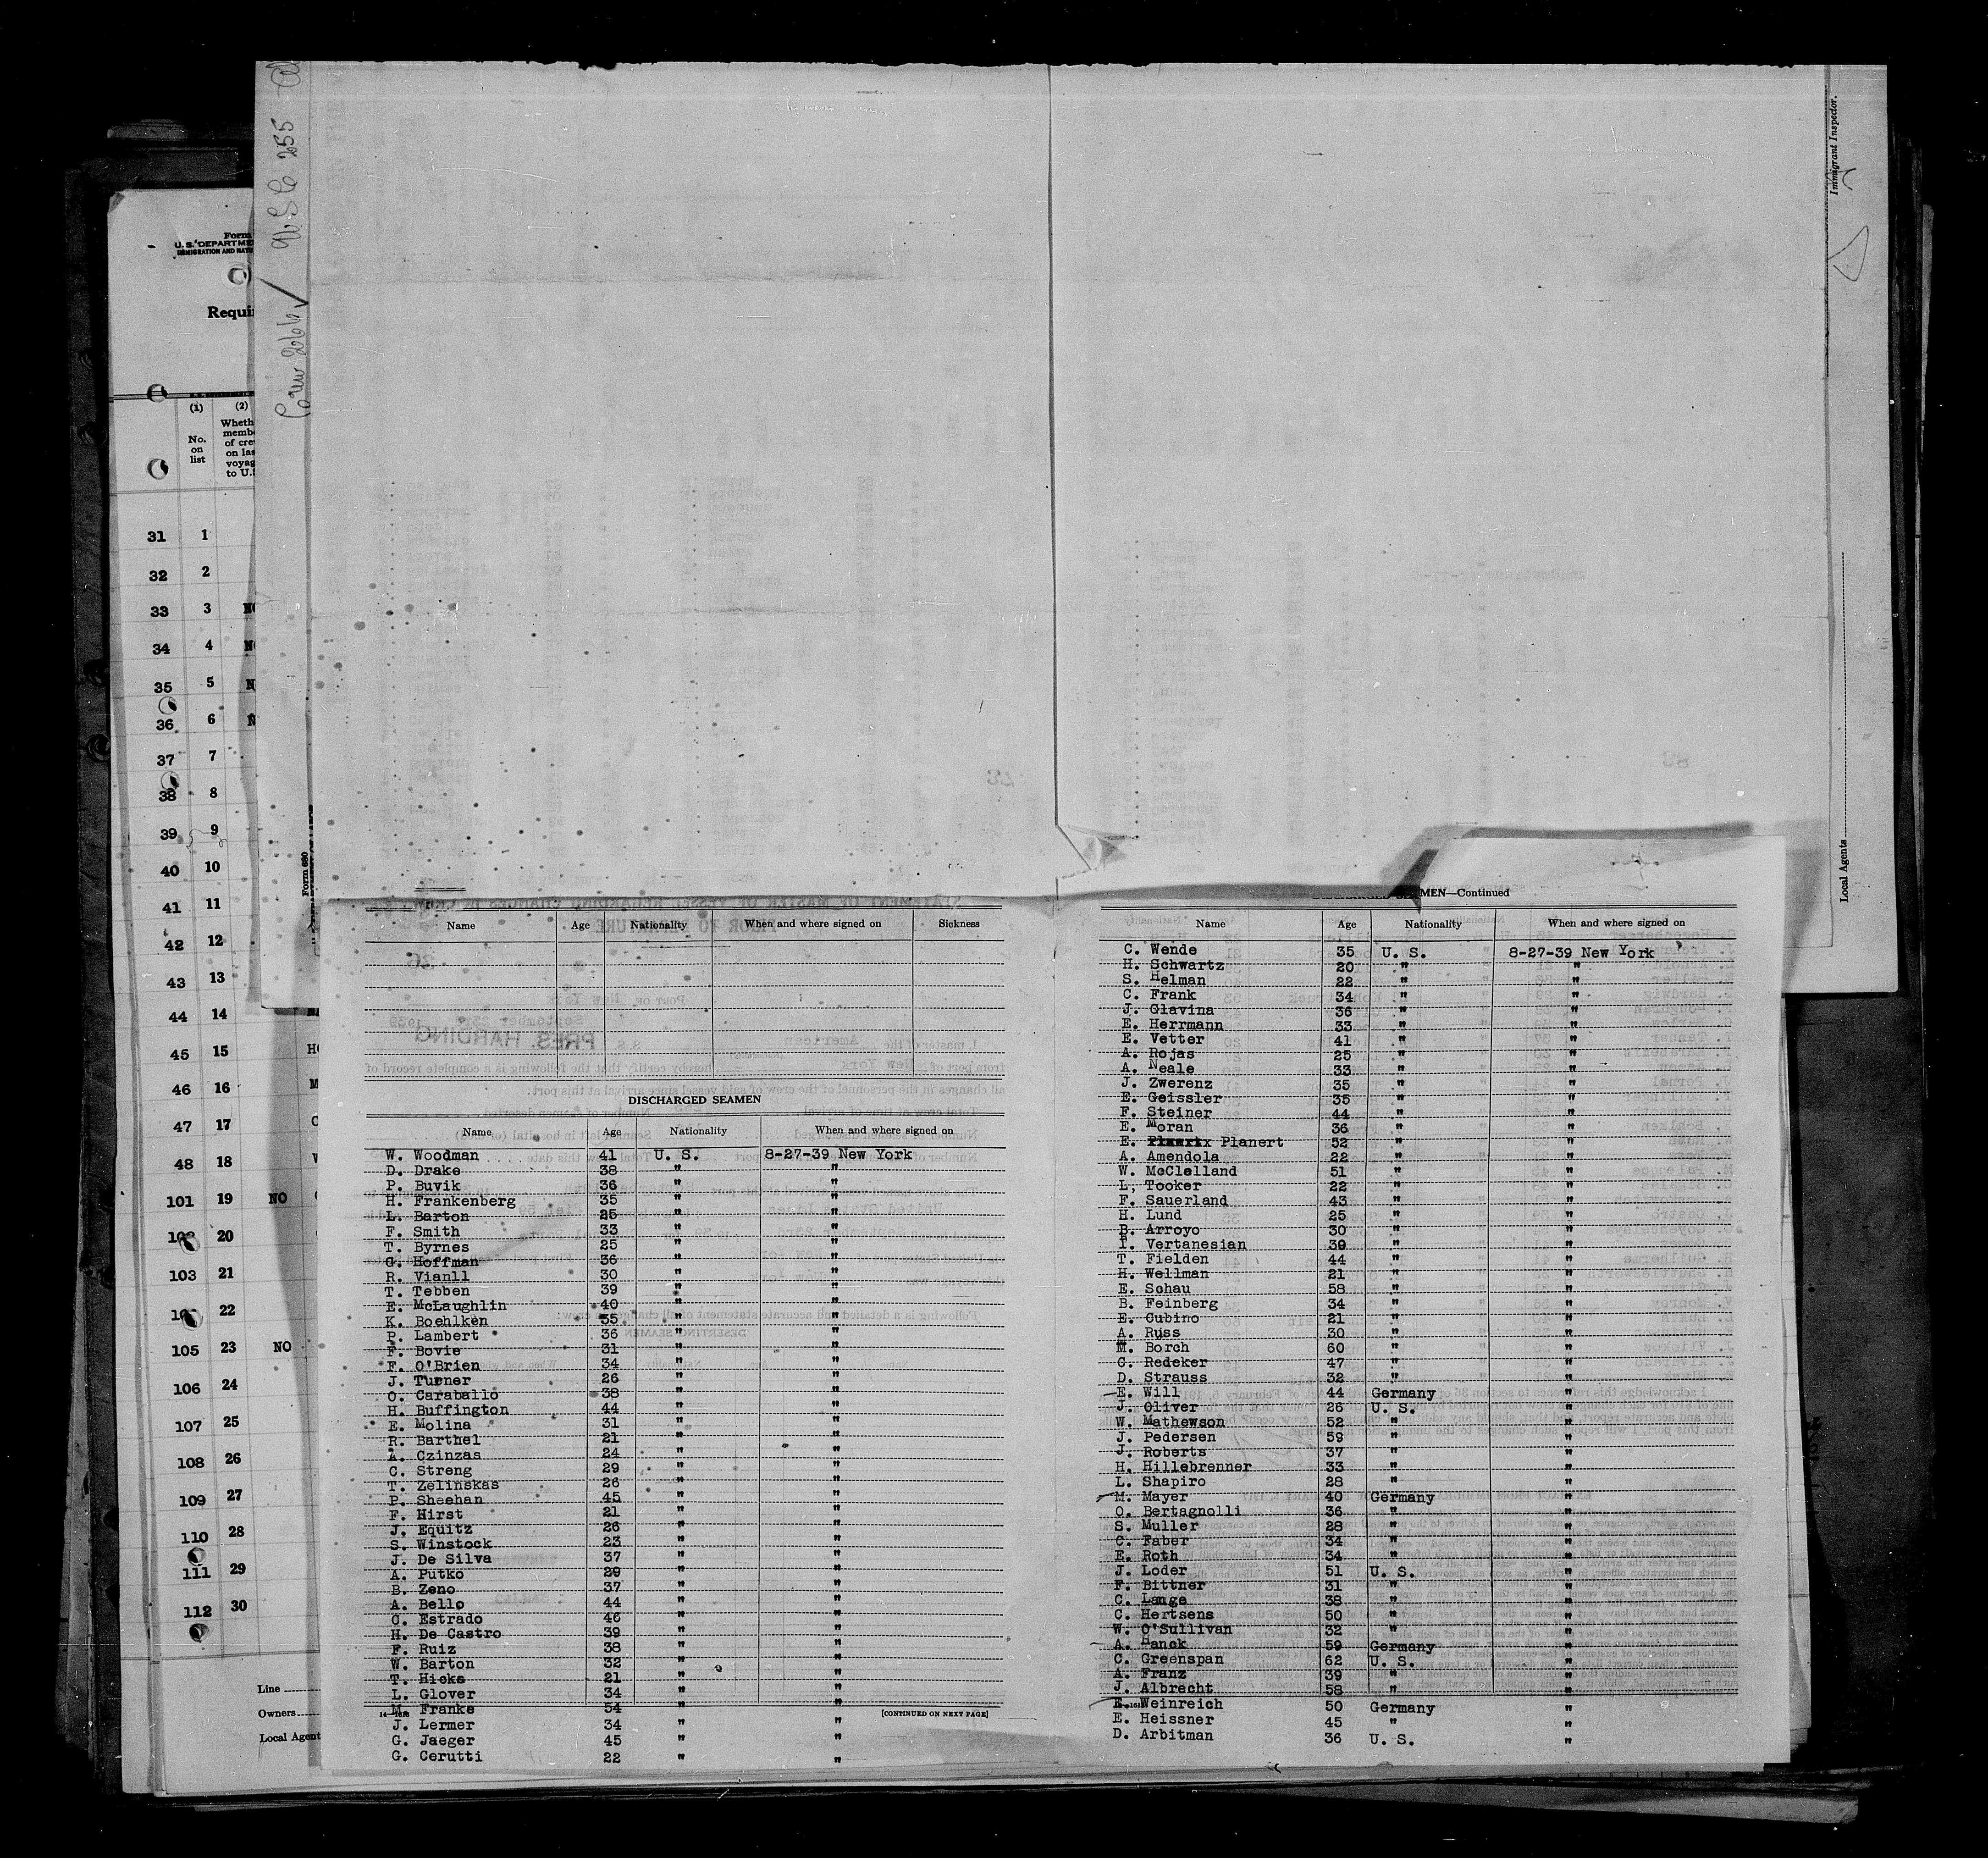 Form
U. S. DEPARTME
Requi
(1) (2)
No.
on
list
Wheth
memb
of cre
on las
voyag
to U.
31 1
32 2
33 3
34 4
35 5
36 6
37 7
38 8
39 9
40 10
41 11
42 12
43 13
44 14
45 15
46 16
47 17
48 18
101 19 NO
20
103 21
22
105 23 NO
106 24
107 25
108 26
109 27
110 28
111 29
112 30
Line
Owners
Local Agent
Crew 266 ✓
255
Form 680
Immigrant Inspector.
Local Agents
Name Age Nationality When and where signed on Sickness
DISCHARGED SEAMEN
Name Age Nationality When and where signed on
W. Woodman 41 U. S. 8-27-39 New York
D. Drake 38 " "
P. Buvik 36 " "
H. Frankenberg 35 " "
L. Barton 25 " "
F. Smith 33 " "
T. Byrnes 25 " "
G. Hoffman 36 " "
R. Vianll 30 " "
T. Tebben 39 " "
E. McLaughlin 40 " "
K. Boehlken 35 " "
P. Lambert 36 " "
F. Bovie 31 " "
F. O'Brien 34 " "
J. Turner 26 " "
O. Caraballo 38 " "
H. Buffington 44 " "
E. Molina 31 " "
R. Barthel 21 " "
A. Czinzas 24 " "
C. Streng 29 " "
T. Zelinskas 26 " "
P. Sheehan 45 " "
F. Hirst 21 " "
J. Equitz 26 " "
S. Winstock 23 " "
J. De Silva 37 " "
A. Putko 29 " "
B. Zeno 37 " "
A. Bello 44 " "
C. Estrado 46 " "
H. De Castro 39 " "
F. Ruiz 38 " "
W. Barton 32 " "
T. Hicks 21 " "
L. Glover 34 " "
M. Franke 54 " "
[CONTINUED ON NEXT PAGE]
J. Lermer 34 " "
G. Jaeger 45 " "
G. Cerutti 22 " "
DISCHARGED SEAMEN—Continued
Name Age Nationality When and where signed on
C. Wende 35 U. S. 8-27-39 New York
H. Schwartz 20 " "
S. Helman 22 " "
C. Frank 34 " "
J. Glavina 36 " "
E. Herrmann 33 " "
E. Vetter 41 " "
A. Rojas 25 " "
A. Neale 33 " "
J. Zwerenz 35 " "
E. Geissler 35 " "
F. Steiner 44 " "
E. Moran 36 " "
E. Planert 52 " "
A. Amendola 22 " "
W. McClelland 51 " "
L. Tooker 22 " "
F. Sauerland 43 " "
H. Lund 25 " "
B. Arroyo 30 " "
I. Vertanesian 39 " "
T. Fielden 44 " "
H. Wellman 21 " "
E. Schau 58 " "
B. Feinberg 34 " "
E. Cubino 21 " "
A. Russ 30 " "
M. Borch 60 " "
C. Redeker 47 " "
D. Strauss 32 " "
E. Will 44 Germany "
J. Oliver 26 U. S. "
W. Mathewson 52 " "
J. Pedersen 59 " "
J. Roberts 37 " "
H. Hillebrenner 33 " "
L. Shapiro 28 " "
M. Mayer 40 Germany "
O. Bertagnolli 36 " "
S. Muller 28 " "
C. Faber 34 " "
E. Roth 34 " "
J. Loder 51 U. S. "
F. Bittner 31 " "
C. Lange 38 " "
C. Hertsens 50 " "
W. O'Sullivan 32 " "
A. Hanck 59 Germany "
C. Greenspan 62 U. S. "
A. Franz 39 " "
J. Albrecht 58 " "
E. Weinreich 50 Germany "
E. Heissner 45 " "
D. Arbitman 36 U. S. "